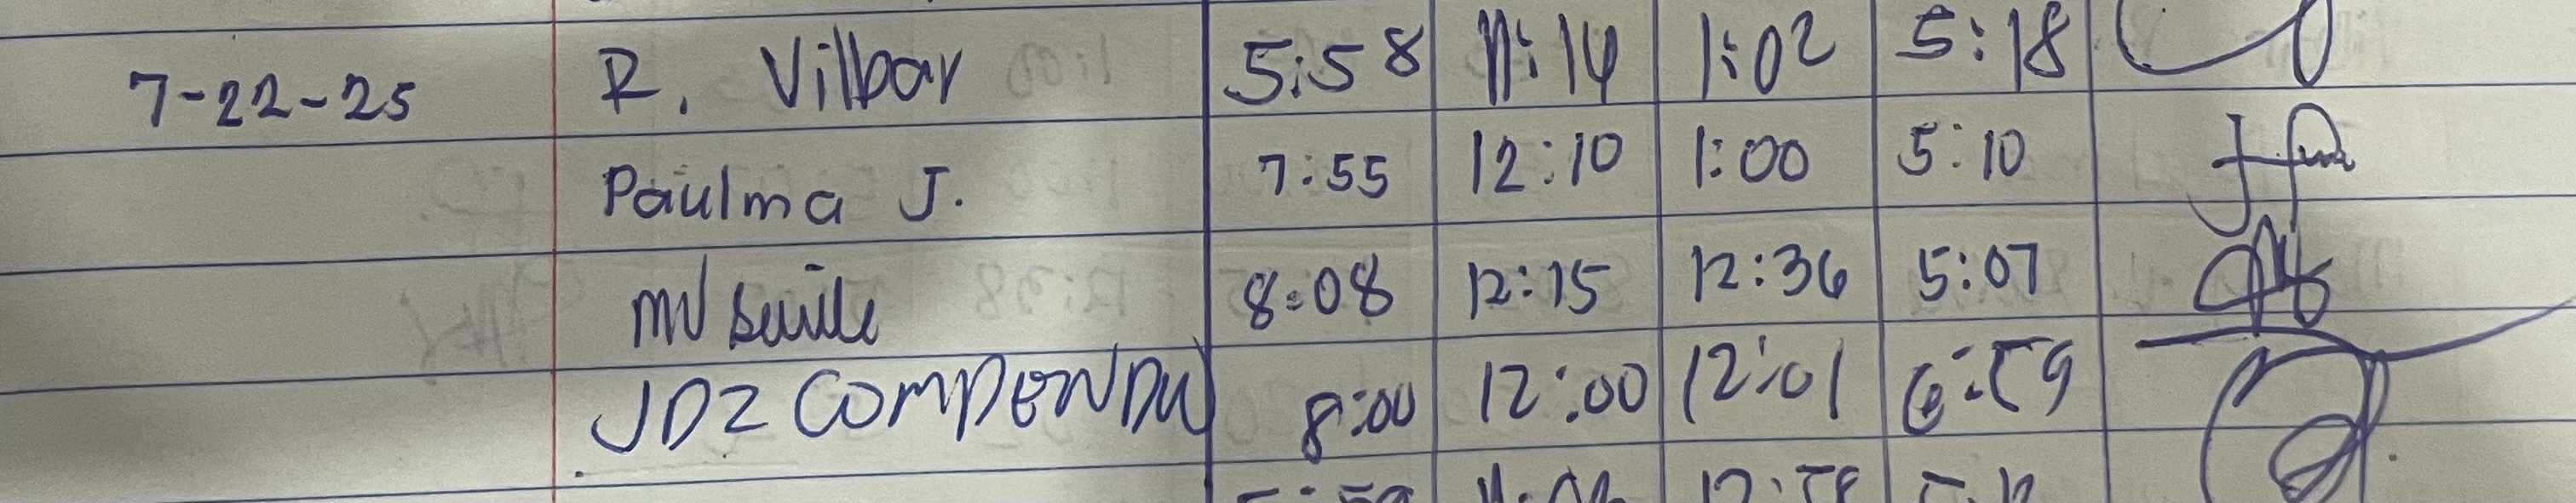 7-22-25 R. Vilbar 5:58 11:14 1:02 5:18
Paulma J. 7:55 12:10 1:00 5:10
8:08 12:15 12:36 5:07
JDZ 8:00 12:00 12:01 6:59